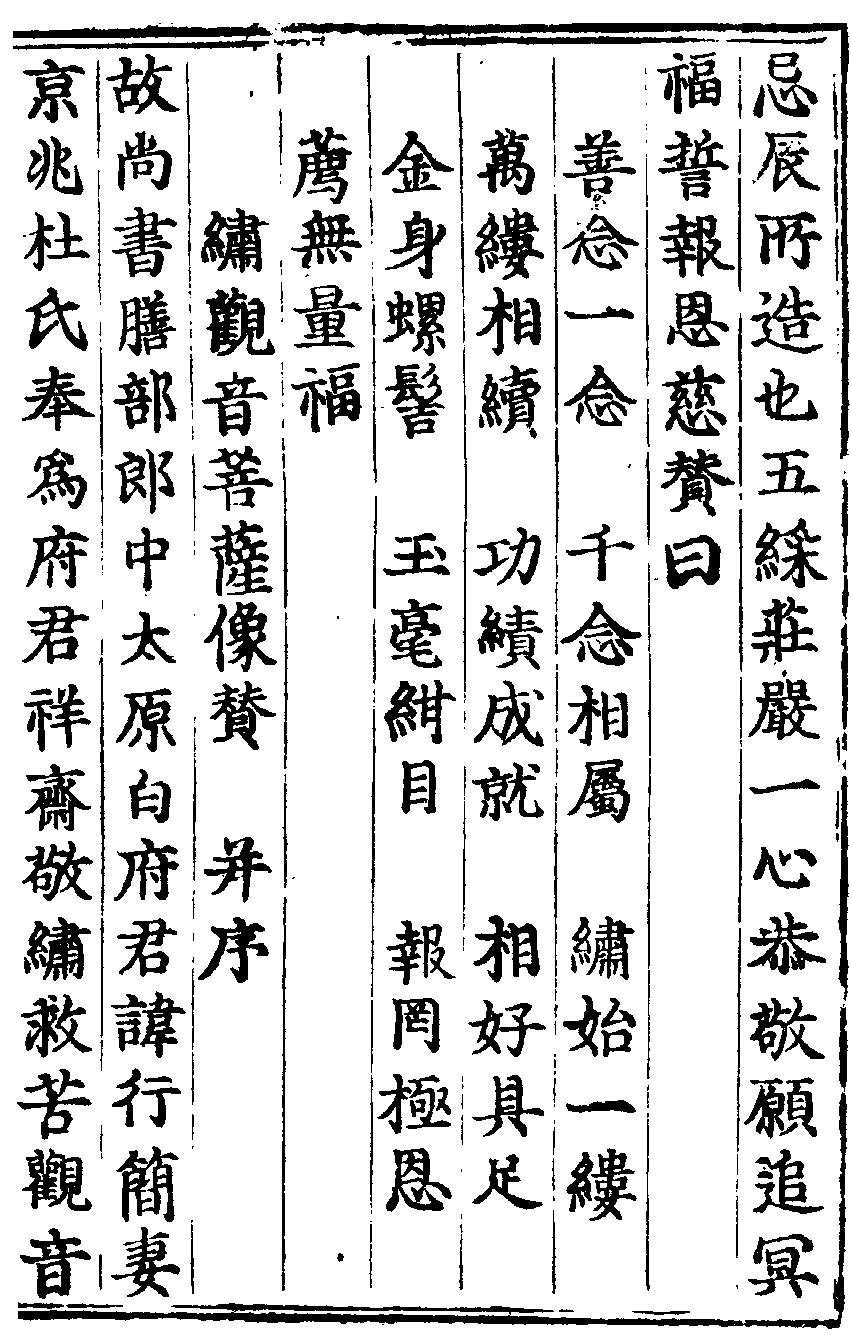 忌辰所造也五綵莊嚴一心恭敬願追冥
福誓報恩慈賛曰
善念一念　千念相屬　繡始一縷
萬縷相續　功績成就　相好具足
金身螺髻　玉毫紺目　報罔極恩
薦無量福
繡觀音菩薩像賛　并序
故尚書膳部郎中太原白府君諱行簡妻
京兆杜氏奉爲府君祥齋敬繡救苦觀音